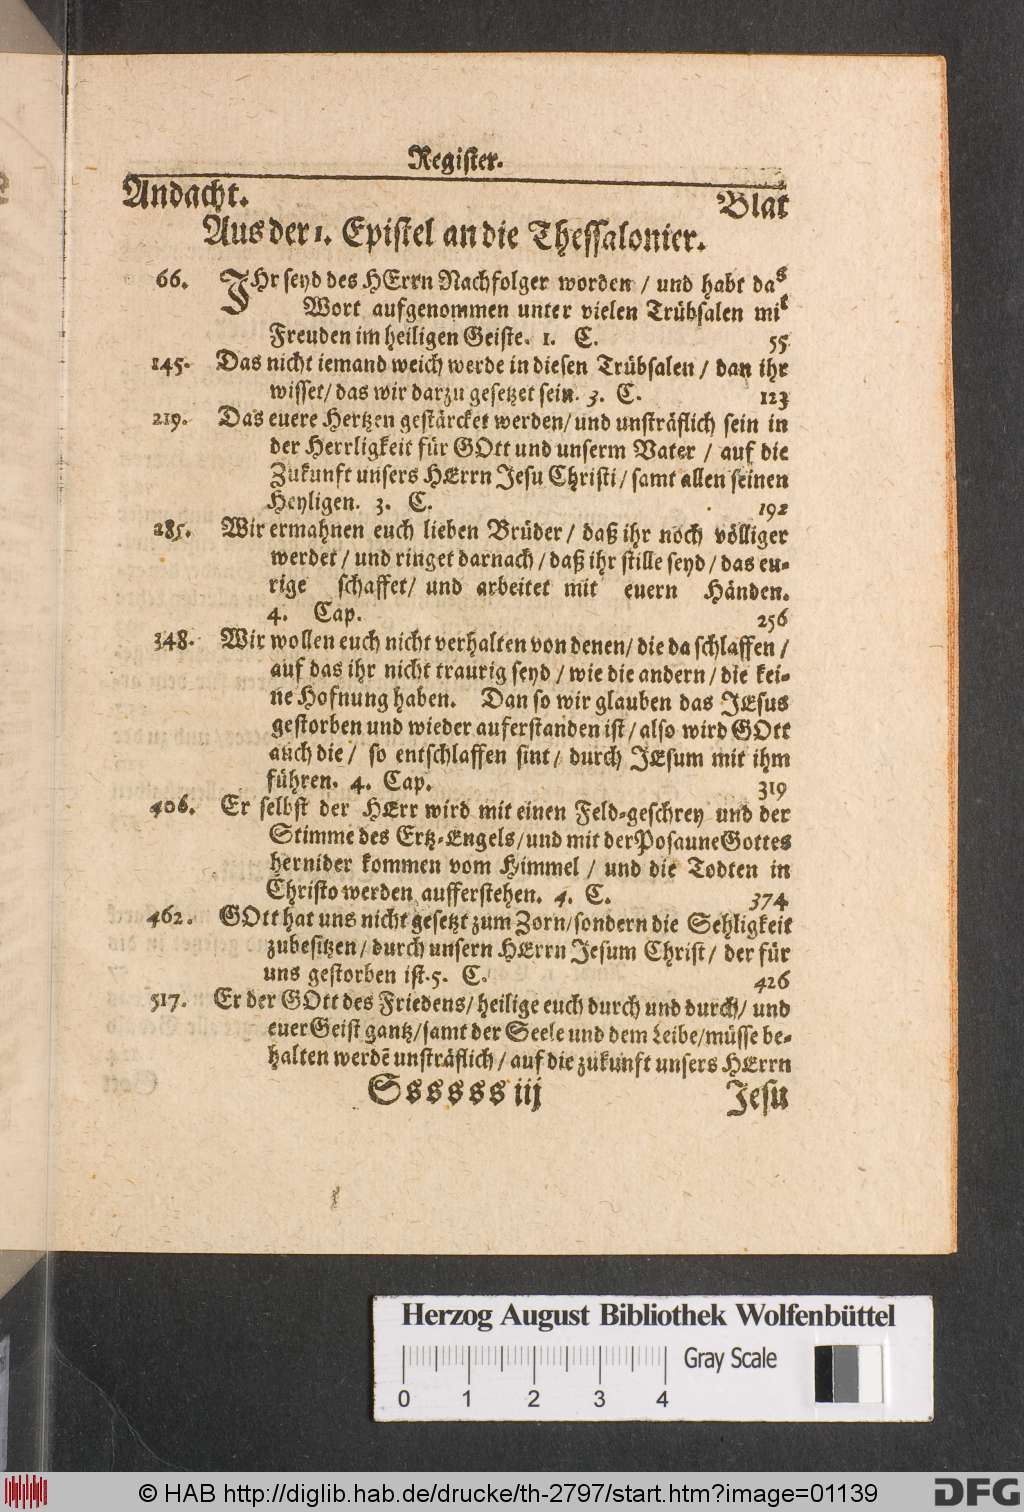 Register.
Andacht. Blat
Aus der 1. Epistel an die Thessalonier.
66. IHr seyd des HErrn Nachfolger worden / und habt das
Wort aufgenommen unter vielen Trübsalen mit
Freuden im heiligen Geiste. 1. C. 55
145. Das nicht iemand weich werde in diesen Trübsalen / dan ihr
wisset / das wir darzu gesetzet sein. 3. C. 123
219. Das euere Hertzen gestärcket werden / und unsträflich sein in
der Herrligkeit für GOtt und unserm Vater / auf die
Zukunft unsers HErrn Jesu Christi / samt allen seinen
Heyligen. 3. C. 192
285. Wir ermahnen euch lieben Brüder / daß ihr noch völliger
werdet / und ringet darnach / daß ihr stille seyd / das eu-
rige schaffet / und arbeitet mit euern Händen.
4. Cap. 256
348. Wir wollen euch nicht verhalten von denen / die da schlaffen /
auf das ihr nicht traurig seyd / wie die andern / die kei-
ne Hofnung haben. Dan so wir glauben das JEsus
gestorben und wieder auferstanden ist / also wird GOtt
auch die / so entschlaffen sint / durch JEsum mit ihm
führen. 4. Cap. 319
406. Er selbst der HErr wird mit einen Feld-geschrey und der
Stimme des Ertz-Engels / und mit der Posaune Gottes
hernider kommen vom Himmel / und die Todten in
Christo werden aufferstehen. 4. C. 374
462. GOtt hat uns nicht gesetzt zum Zorn / sondern die Sehligkeit
zubesitzen / durch unsern HErrn Jesum Christ / der für
uns gestorben ist. 5. C. 426
517. Er der GOtt des Friedens / heilige euch durch und durch / und
euer Geist gantz / samt der Seele und dem Leibe / müsse be-
halten werdē unsträflich / auf die zukunft unsers HErrn
Ssssss iij Jesu
Herzog August Bibliothek Wolfenbüttel
Gray Scale
0 1 2 3 4
© HAB http://diglib.hab.de/drucke/th-2797/start.htm?image=01139
DFG